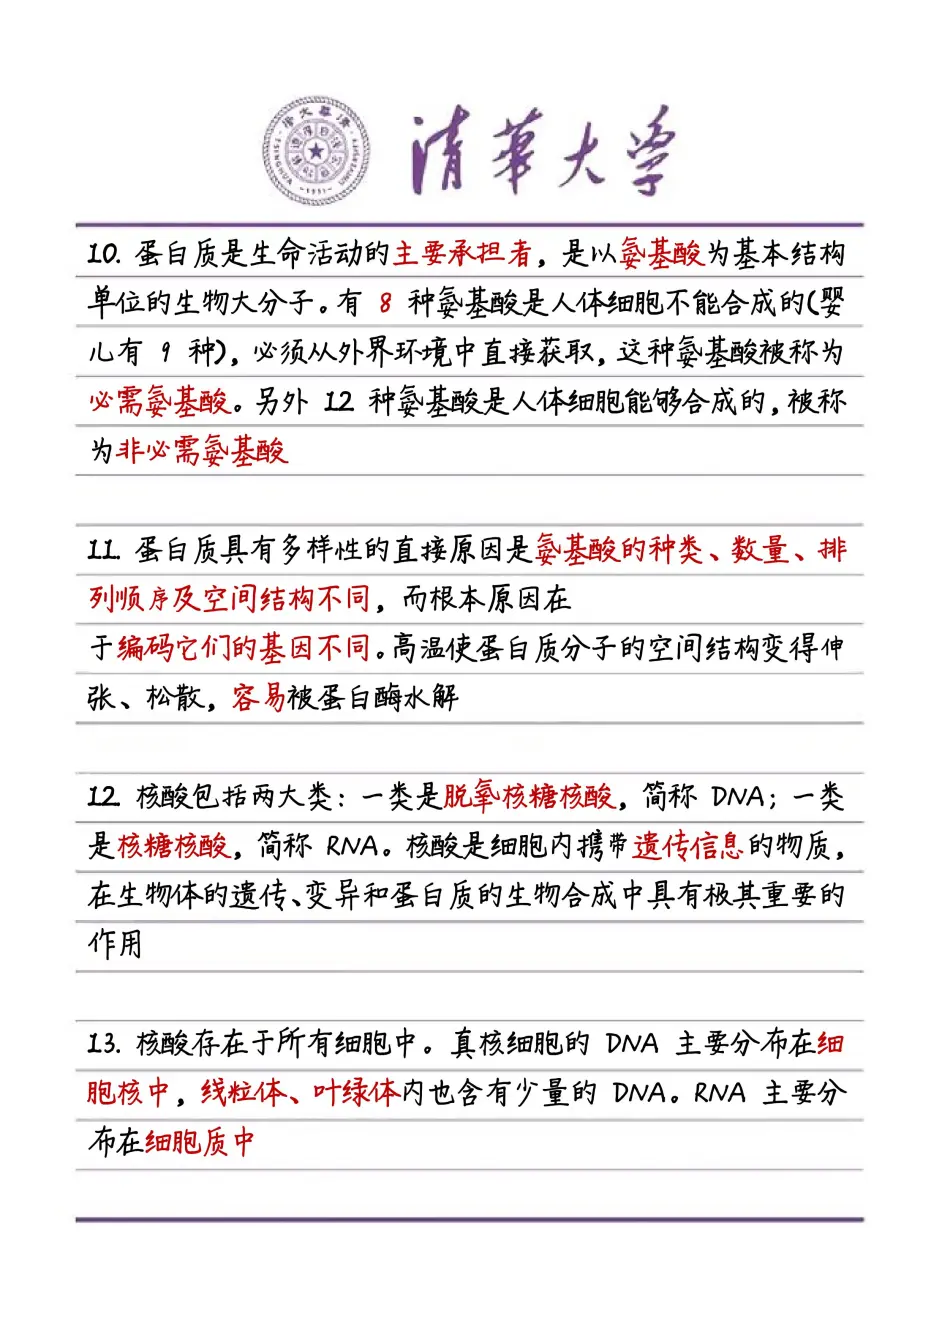 清华大学
TSINGHUA UNIVERSITY
-1911-
10. 蛋白质是生命活动的主要承担者，是以氨基酸为基本结构
单位的生物大分子。有 8 种氨基酸是人体细胞不能合成的(婴
儿有 9 种)，必须从外界环境中直接获取，这种氨基酸被称为
必需氨基酸。另外 12 种氨基酸是人体细胞能够合成的，被称
为非必需氨基酸
11. 蛋白质具有多样性的直接原因是氨基酸的种类、数量、排
列顺序及空间结构不同，而根本原因在
于编码它们的基因不同。高温使蛋白质分子的空间结构变得伸
张、松散，容易被蛋白酶水解
12. 核酸包括两大类：一类是脱氧核糖核酸，简称 DNA；一类
是核糖核酸，简称 RNA。核酸是细胞内携带遗传信息的物质，
在生物体的遗传、变异和蛋白质的生物合成中具有极其重要的
作用
13. 核酸存在于所有细胞中。真核细胞的 DNA 主要分布在细
胞核中，线粒体、叶绿体内也含有少量的 DNA。RNA 主要分
布在细胞质中